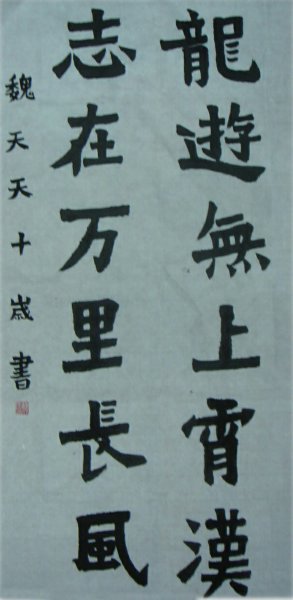 龍遊無上霄漢
志在万里長風
魏天天十歲書